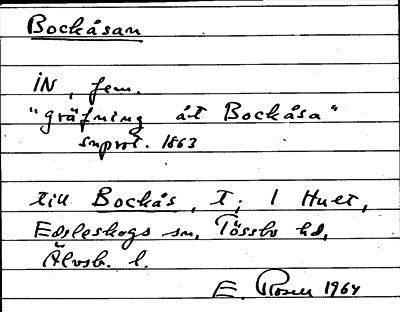 Bockåsan
IN, fem.
"gräfning åt Bockåsa"
snprot. 1863
till Bockås, T; 1 Huet,
Edsleskogs sn, Tössbo hd,
Älvsb. l.
E. Rosen 1964